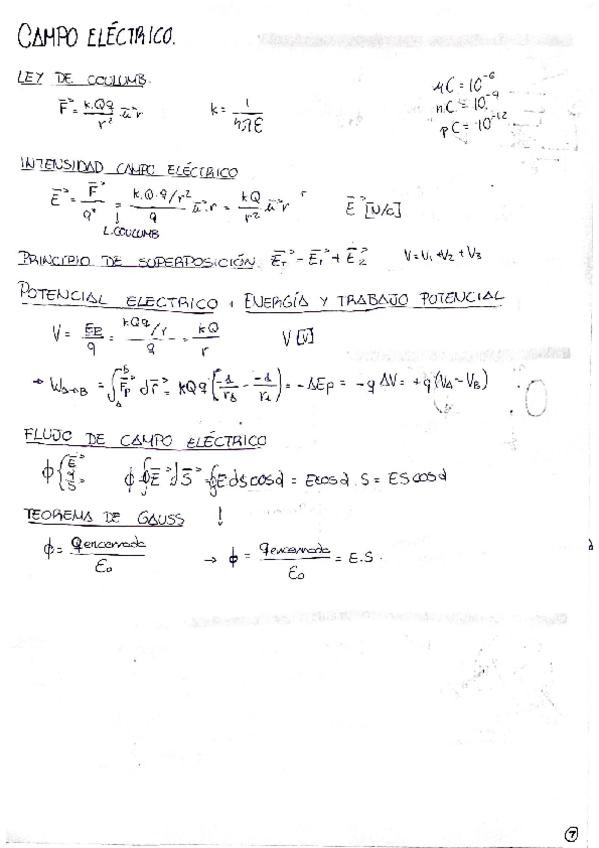 CAMPO ELÉCTRICO.
LEY DE COULUMB.
F⃗ = k.Qq/r² u⃗r    k = 1/4πε    μC = 10⁻⁶
nC = 10⁻⁹
pC = 10⁻¹²
INTENSIDAD CAMPO ELÉCTRICO
E⃗ = F⃗/q⁺ = k.Q.q/r²/q u⃗r = kQ/r² u⃗r    E⃗ [N/C]
↓
L.COULUMB
PRINCIPIO DE SUPERPOSICIÓN. E⃗T = E⃗1 + E⃗2    V = V1 + V2 + V3
POTENCIAL ELECTRICO, ENERGÍA Y TRABAJO POTENCIAL
V = Ep/q = kQq/r/q = kQ/r    V [V]
→ WA→B = ∫ᴀᵇ F⃗p dr⃗ = KQq (-1/rb - -1/ra) = -ΔEp = -qΔV = +q(VA - VB)
FLUJO DE CAMPO ELÉCTRICO
ϕ { E⃗ y S⃗    ϕ ∮E⃗ dS⃗ = ∮E ds cosα = E cosα . S = ES cosα
TEOREMA DE GAUSS !
ϕ = qencerrada/ε₀ → ϕ = qencerrada/ε₀ = E.S.
7